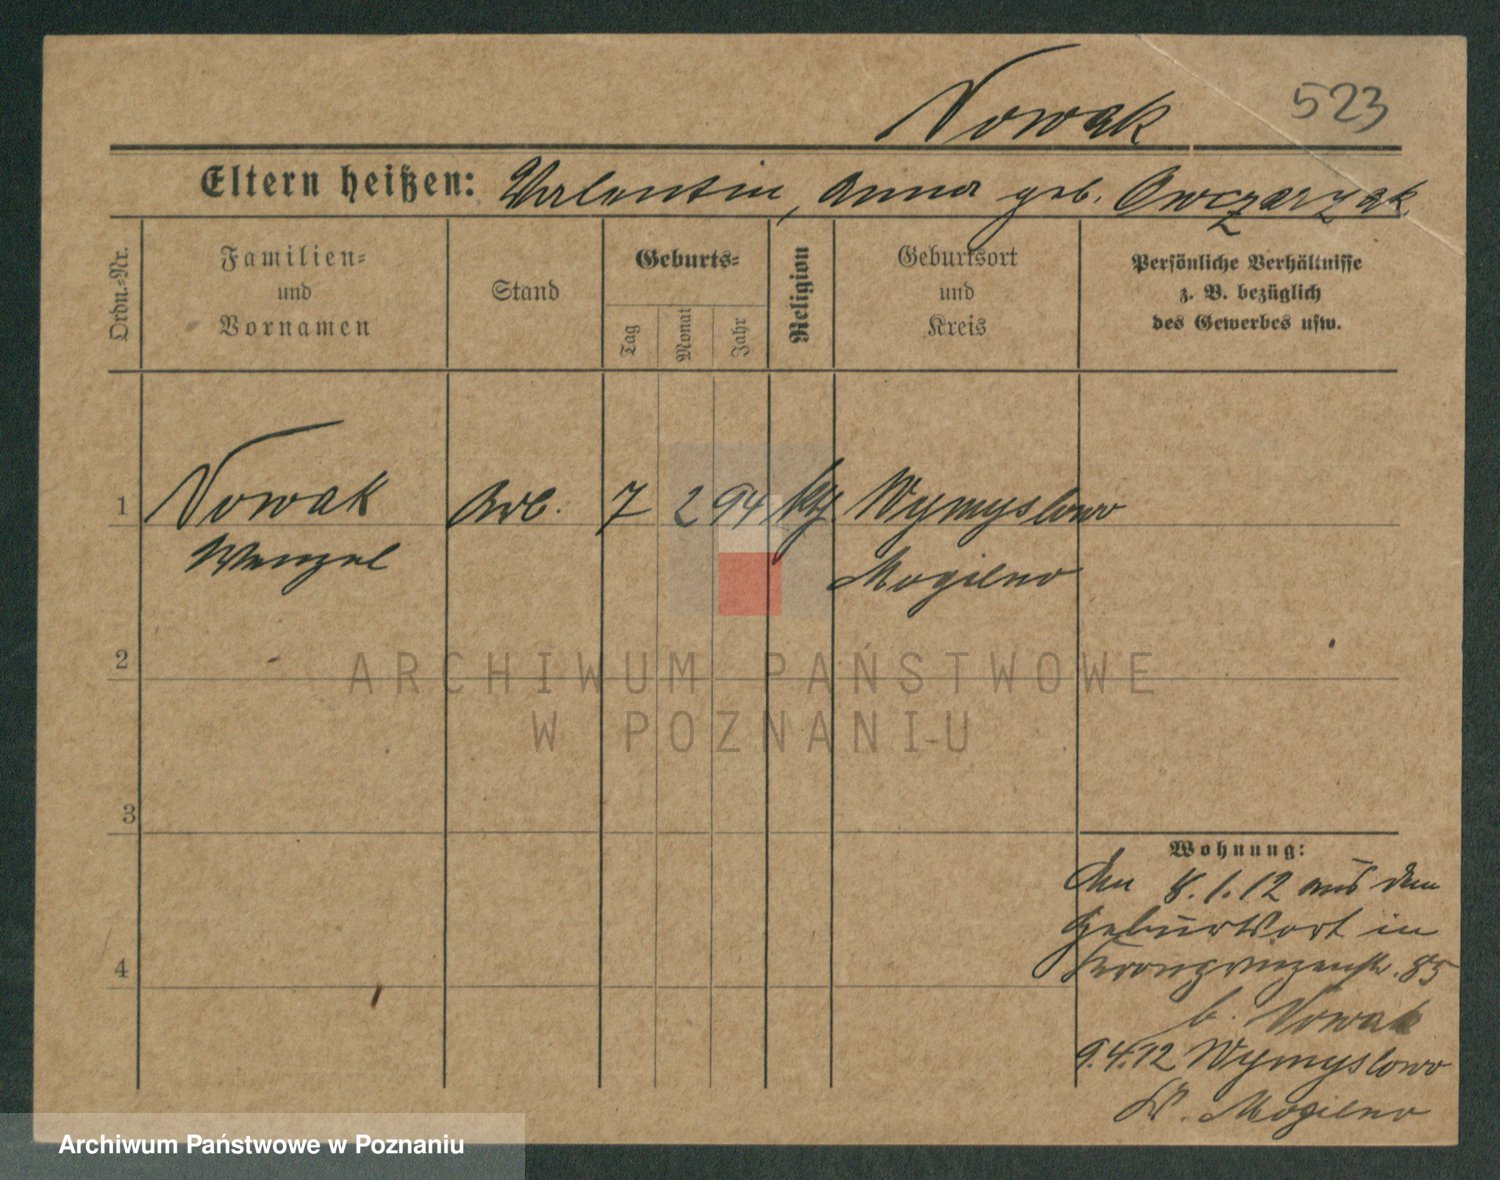 Nowak 523
Eltern heißen: Valentin, Anna geb. Owczarzak
Ordn.-Nr.
Familien-
und
Vornamen
Stand
Geburts-
Tag
Monat
Jahr
Religion
Geburtsort
und
Kreis
Persönliche Verhältnisse
z. B. bezüglich
des Gewerbes usw.
1 Nowak Arb. 7 2 94 kth. Wymyslowo
Wenzel Mogilno
2
3
4
ARCHIWUM PAŃSTWOWE
W POZNANIU
Wohnung:
Den 8.1.12 aus dem
Geburtsort in
Kronprinzenstr. 85
b. Nowak
9.4.12 Wymyslowo
Kr. Mogilno
Archiwum Państwowe w Poznaniu